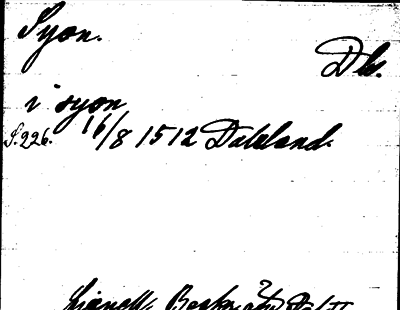 Syon.
Ds.
i syon
S. 226. 16/8 1512 Dalsland.
Lignell, Beskr.